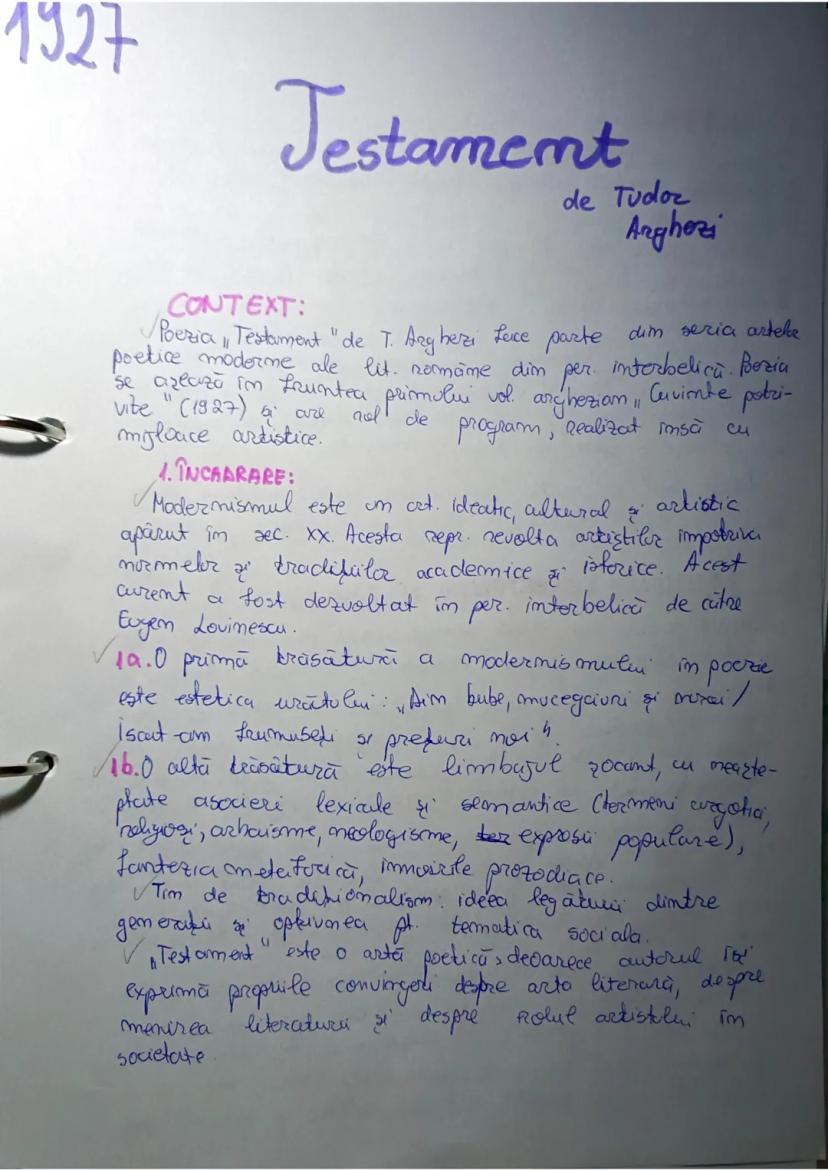 1927
Testament
de Tudor
Arghezi
CONTEXT:
Poezia „Testament" de T. Arghezi face parte din seria artelor
poetice moderne ale lit. române din per. interbelică. Poezia
se așează în fruntea primului vol. arghezian „Cuvinte potri-
vite" (1927) și are rol de program, realizat însă cu
mijloace artistice.
1. ÎNCADRARE:
Modernismul este un crt. ideatic, cultural și artistic
apărut în sec. XX. Acesta repr. revolta artiștilor împotriva
normelor și tradițiilor academice și istorice. Acest
curent a fost dezvoltat în per. interbelică de către
Eugen Lovinescu.
1a. O primă trăsătură a modernismului în poezie
este estetica urâtului: „Din bube, mucegaiuri și noroi /
Iscat-am frumuseți și prețuri noi".
1b. O altă trăsătură este limbajul șocant, cu neaște-
ptate asocieri lexicale și semantice (termeni argotici,
religioși, arhaisme, neologisme, expresii populare),
fantezia metaforică, înnoirile prozodiace.
Țin de tradiționalism: ideea legăturii dintre
generații și opțiunea pt. tematica socială.
„Testament" este o artă poetică, deoarece autorul își
exprimă propriile convingeri despre arta literară, despre
menirea literaturii și despre rolul artistului în
societate.